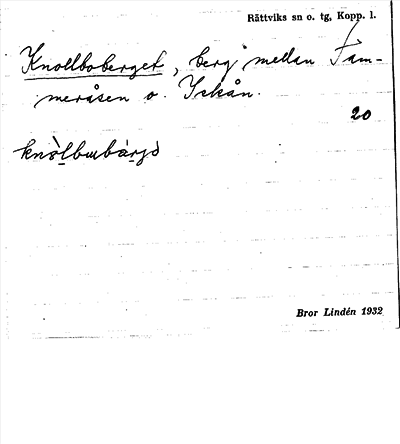 Rättviks sn o. tg, Kopp. l.
Knollboberget, berg mellan Tam-
meråsen o. Ickån.
20
Bror Lindén 1932